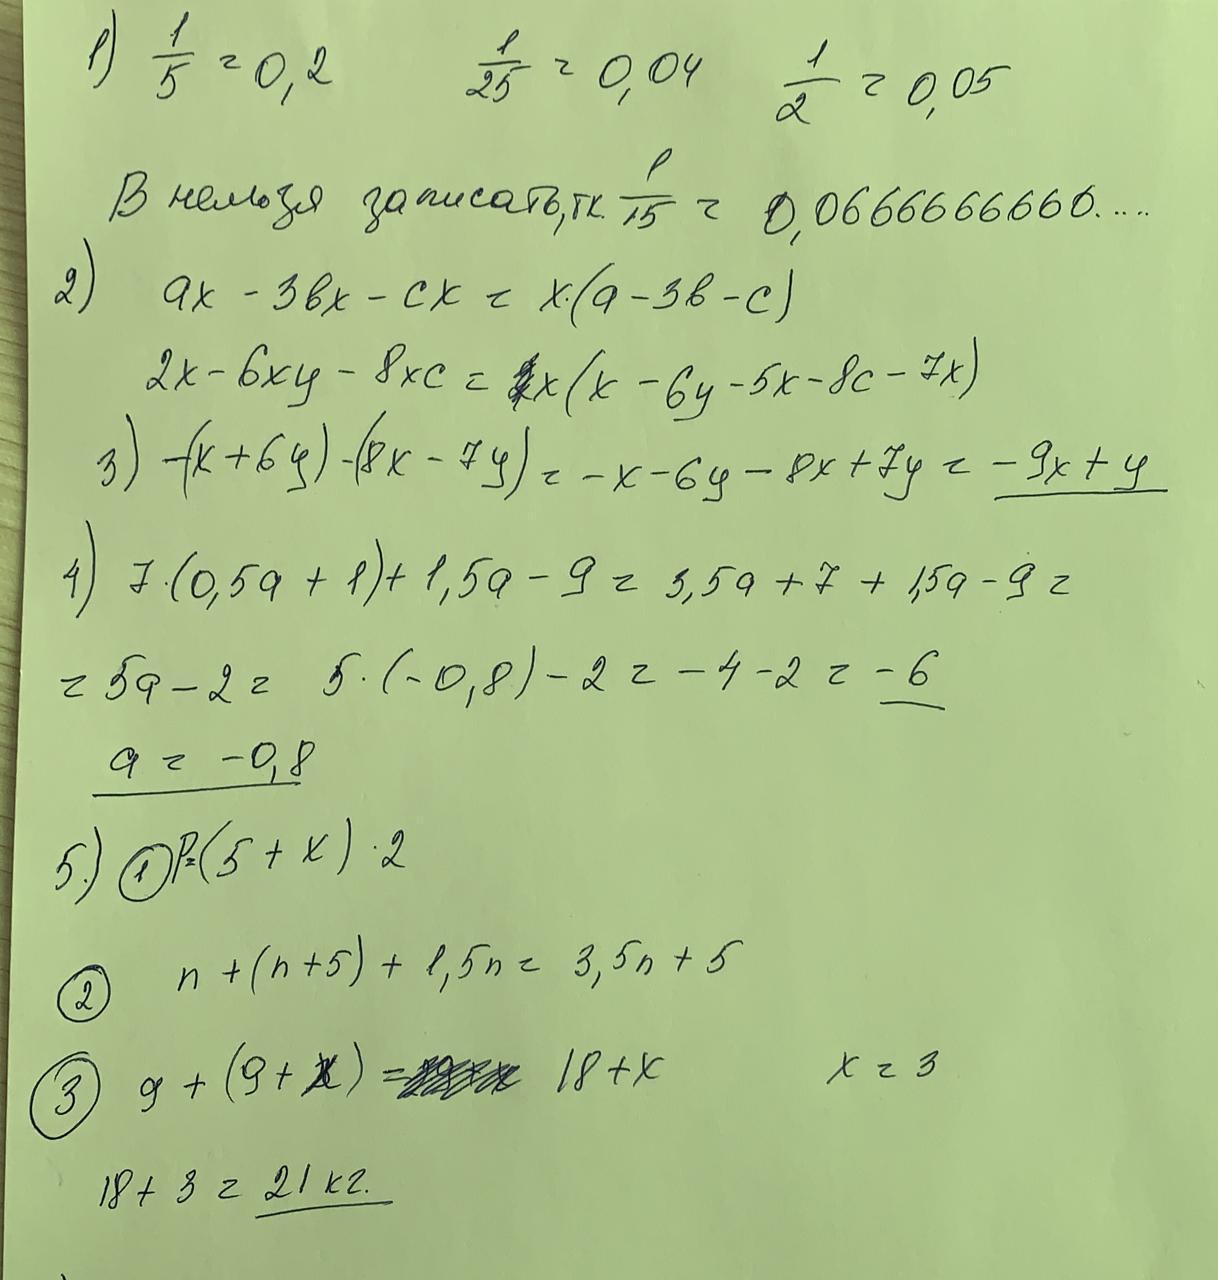 1) 1/5 = 0,2 1/25 = 0,04 1/2 = 0,05
В нельзя записать, тк. 1/15 = 0,0666666660.....
2) ax - 3вx - cx = x·(a - 3в - c)
2x - 6xy - 8xc = x(x - 6y - 5x - 8c - 7x)
3) -(x + 6y) - (8x - 7y) = -x - 6y - 8x + 7y = -9x + y
4) 7·(0,5a + 1) + 1,5a - 9 = 3,5a + 7 + 1,5a - 9 =
= 5a - 2 = 5·(-0,8) - 2 = -4 - 2 = -6
a = -0,8
5.) ① P=(5 + x)·2
② n + (n+5) + 1,5n = 3,5n + 5
③ 9 + (9 + x) = 18 + x x = 3
18 + 3 = 21 кг.